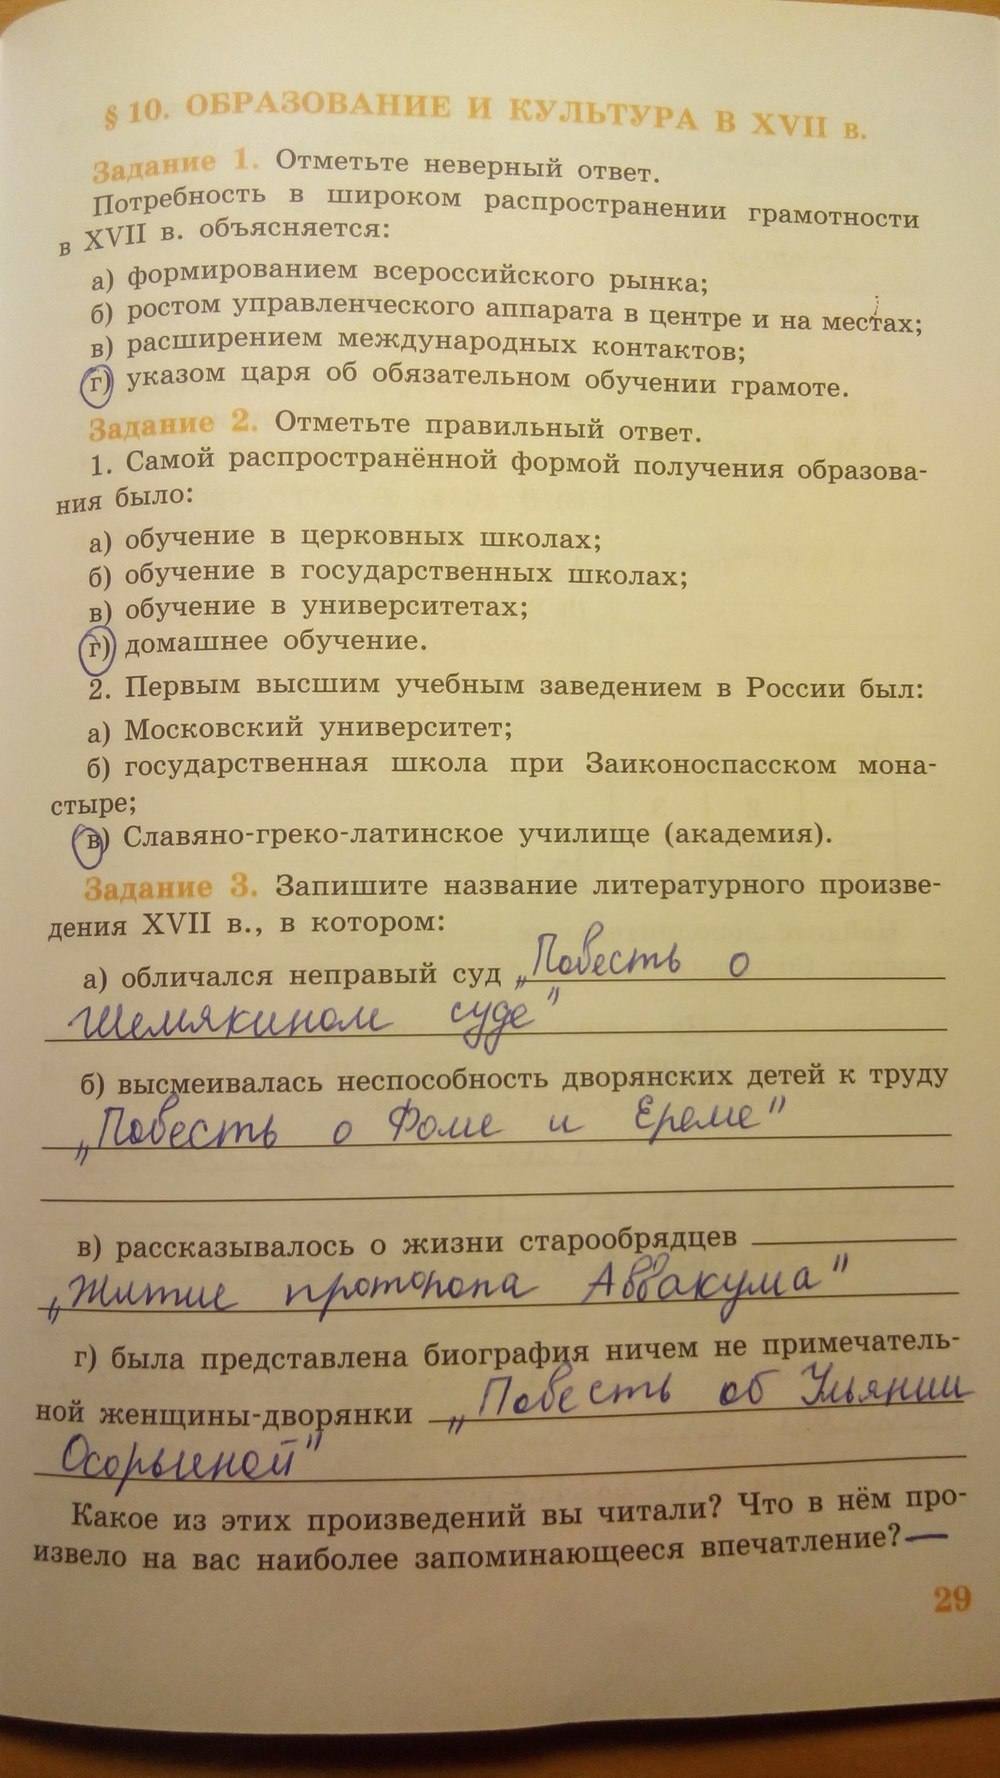 § 10. ОБРАЗОВАНИЕ И КУЛЬТУРА В XVII в.
Задание 1. Отметьте неверный ответ.
Потребность в широком распространении грамотности
в XVII в. объясняется:
а) формированием всероссийского рынка;
б) ростом управленческого аппарата в центре и на местах;
в) расширением международных контактов;
г) указом царя об обязательном обучении грамоте.
Задание 2. Отметьте правильный ответ.
1. Самой распространённой формой получения образова-
ния было:
а) обучение в церковных школах;
б) обучение в государственных школах;
в) обучение в университетах;
г) домашнее обучение.
2. Первым высшим учебным заведением в России был:
а) Московский университет;
б) государственная школа при Заиконоспасском мона-
стыре;
в) Славяно-греко-латинское училище (академия).
Задание 3. Запишите название литературного произве-
дения XVII в., в котором:
а) обличался неправый суд „Повесть о
Шемякином суде"
б) высмеивалась неспособность дворянских детей к труду
„Повесть о Фоме и Ереме"
в) рассказывалось о жизни старообрядцев
„Житие протопопа Аввакума"
г) была представлена биография ничем не примечатель-
ной женщины-дворянки „Повесть об Ульянии
Осорьиной"
Какое из этих произведений вы читали? Что в нём про-
извело на вас наиболее запоминающееся впечатление? —
29